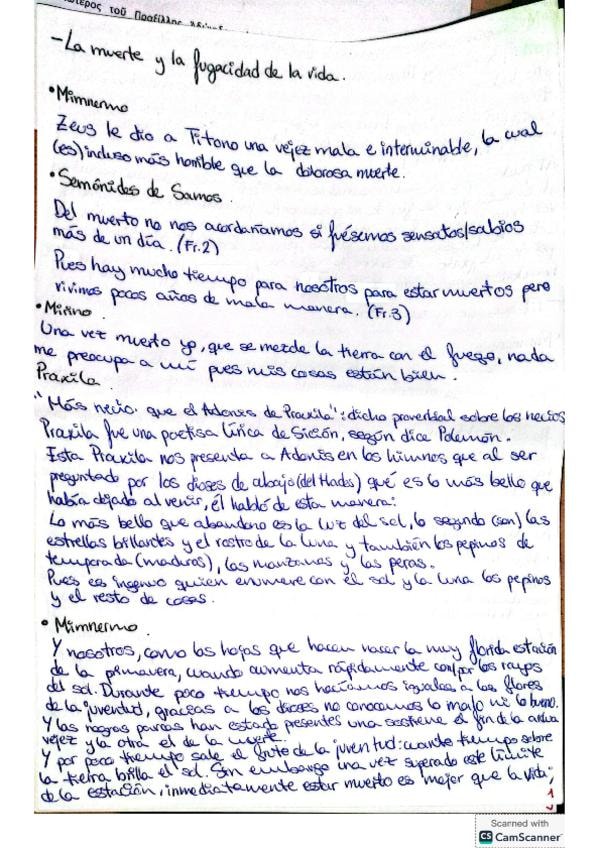 τοῦ Πραξίλλης
- La muerte y la fugacidad de la vida.
• Mimnermo
Zeus le dio a Titono una vejez mala e interminable, la cual
(es) incluso más horrible que la dolorosa muerte.
• Semónides de Samos.
Del muerto no nos acordaríamos si fuésemos sensatos/sabios
más de un día. (Fr.2)
Pues hay mucho tiempo para nosotros para estar muertos pero
vivimos pocos años de mala manera. (Fr.3)
• Mirino.
Una vez muerto yo, que se mezcle la tierra con el fuego, nada
me preocupa a mí pues mis cosas están bien.
Praxila.
"Más necio que el Adonis de Praxila": dicho proverbial sobre los necios
Praxila fue una poetisa lírica de Sición, según dice Polemón.
Esta Praxila nos presenta a Adonis en los himnos que al ser
preguntado por los dioses de abajo (del Hades) qué es lo más bello que
había dejado al venir, él habló de esta manera:
Lo más bello que abandono es la luz del sol, lo segundo (son) las
estrellas brillantes y el rostro de la luna y también los pepinos de
temporada (maduros), las manzanas y las peras.
Pues es ingenuo quien enumere con el sol y la luna los pepinos
y el resto de cosas.
• Mimnermo.
Y nosotros, como las hojas que hacen nacer la muy florida estación
de la primavera, cuando aumenta rápidamente con/por los rayos
del sol. Durante poco tiempo nos hacíamos iguales a las flores
de la juventud, gracias a los dioses no conocemos lo malo ni lo bueno.
Y las negras parcas han estado presentes una sostiene el fin de la
vejez y la otra el de la muerte.
Y por poco tiempo sale el fruto de la juventud: cuanto tiempo sobre
la tierra brilla el sol. Sin embargo una vez superado este límite
de la estación, inmediatamente estar muerto es mejor que la vida;
1
Scanned with
CS CamScanner